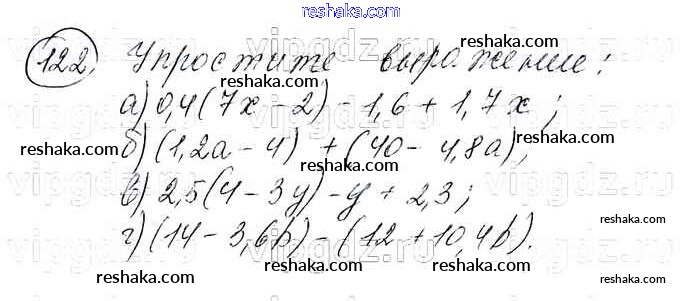 reshaka.com
122. Упростите выражение:
reshaka.com reshaka.com
а) 0,4(7x - 2) - 1,6 + 1,7x;
reshaka.com
б) (1,2a - 4) + (40 - 4,8a);
reshaka.com reshaka.com
в) 2,5(4 - 3y) - y + 2,3;
reshaka.com
г) (14 - 3,6b) - (12 + 10,4b).
reshaka.com reshaka.com reshaka.com